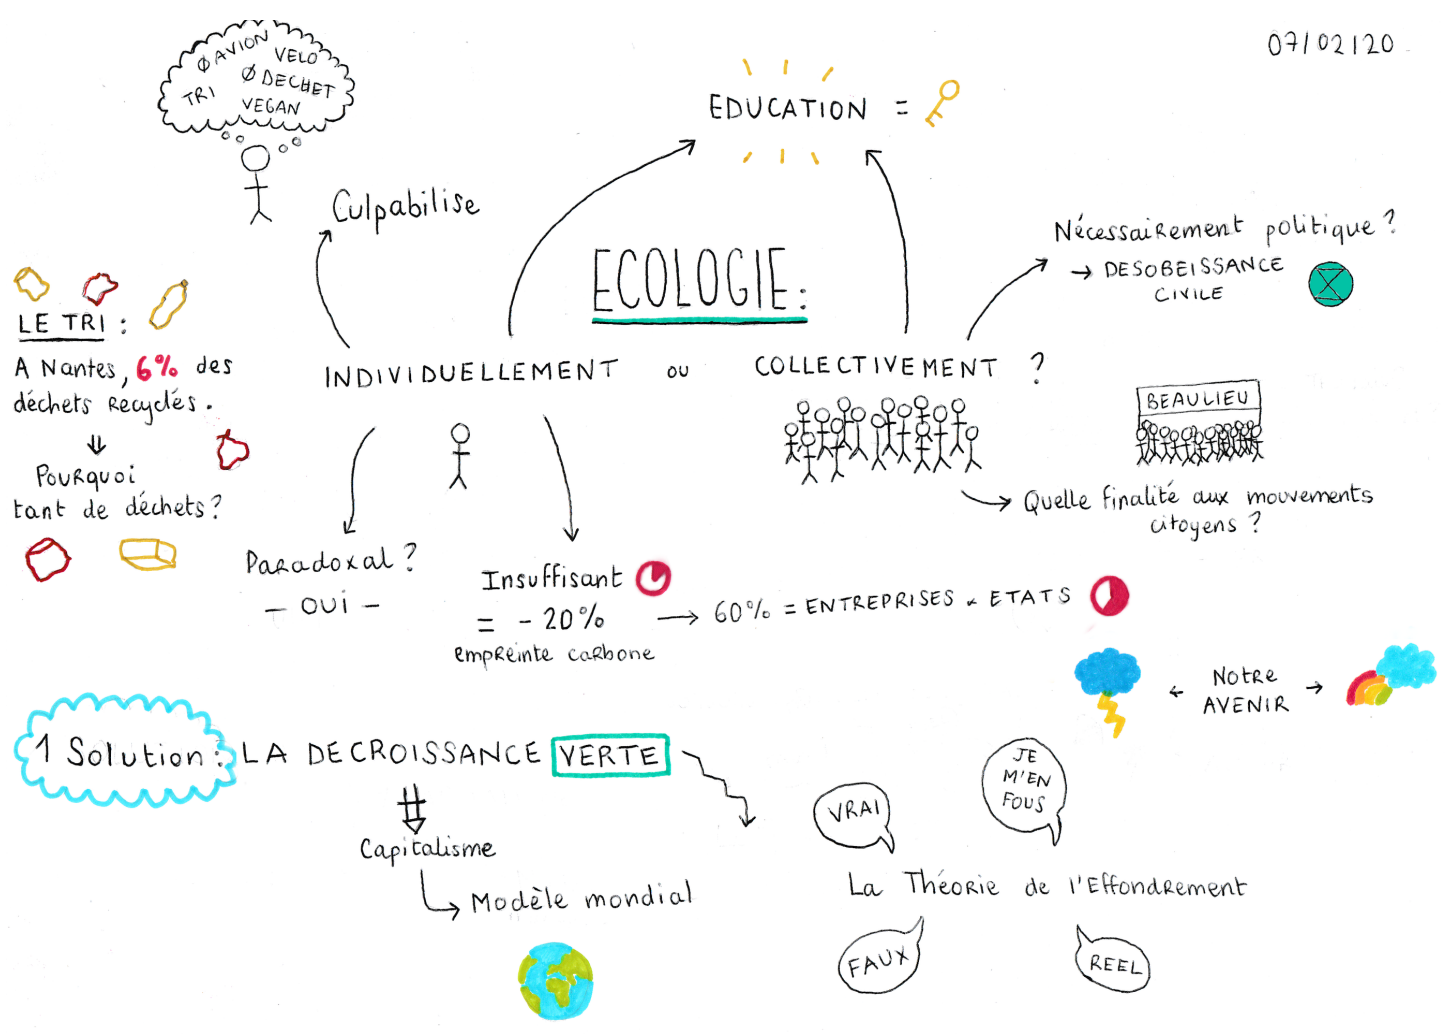 07/02/20
Ø AVION
VELO
Ø DECHET
TRI
VEGAN
EDUCATION =
Culpabilise
Nécessairement politique ?
→ DESOBEISSANCE
CIVILE
ECOLOGIE:
LE TRI :
A Nantes, 6% des
déchets recyclés.
Pourquoi
tant de déchets ?
INDIVIDUELLEMENT ou COLLECTIVEMENT ?
BEAULIEU
Quelle finalité aux mouvements
citoyens ?
Paradoxal ?
- OUI -
Insuffisant
= - 20%
empreinte carbone
→ 60% = ENTREPRISES & ETATS
← Notre →
AVENIR
1 Solution : LA DECROISSANCE VERTE
Capitalisme
Modèle mondial
VRAI
JE
M'EN
FOUS
La Théorie de l'Effondrement
FAUX
REEL